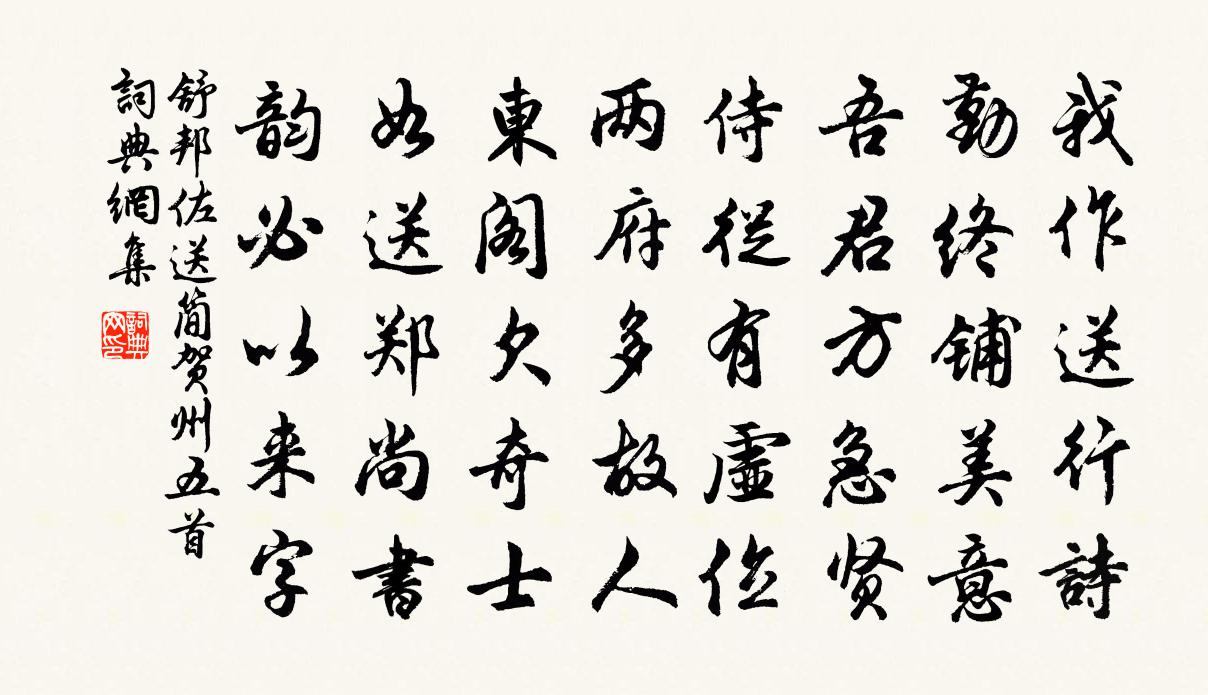 我作送行詩
勤終鋪美意
吾君方急贤
侍從有虛位
两府多故人
東阁欠奇士
如送郑尚書
韵必以来字
舒邦佐送简贺州五首
詞典網集
詞典网印